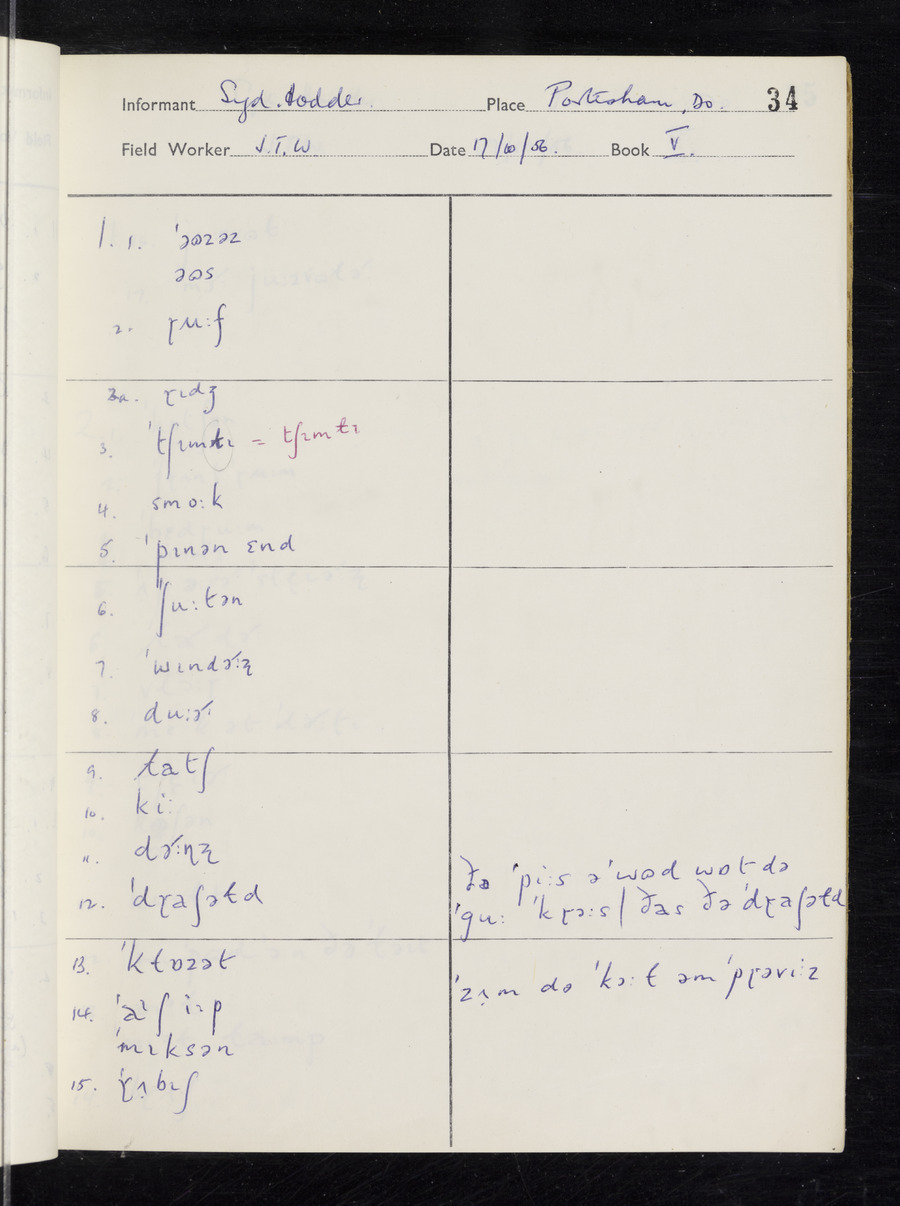 Informant Syd. Hodder. Place Portesham, Do. 34
Field Worker J.T.W. Date 17/10/56. Book V.
1. 1. ˈəʊzəz
əʊs
2. ɽuːf
2a. ɽɪdʒ
3. ˈtʃɪmɫɪ = tʃɪmɫɪ
4. smoːk
5. ˈpɪnən ɛnd
6. ˈʃuːtən
7. ˈwɪndɚːɻ
8. duːɚ
9. ɫatʃ
10. kiː
11. dɚːɳʐ
12. ˈdɽaʃəɫd
ðə ˈpiːs əˈwʊd wɒt də
ˈguː ˈkɽɔːs / ðas ðə ˈdɽaʃəɫd
13. ˈkɫɒzət
14. ˈaɪʃ iːp
ˈmɪksən
15. ˈɽʌbɪʃ
ˈzʌm də ˈkɔːɫ əm ˈpɽəviːz